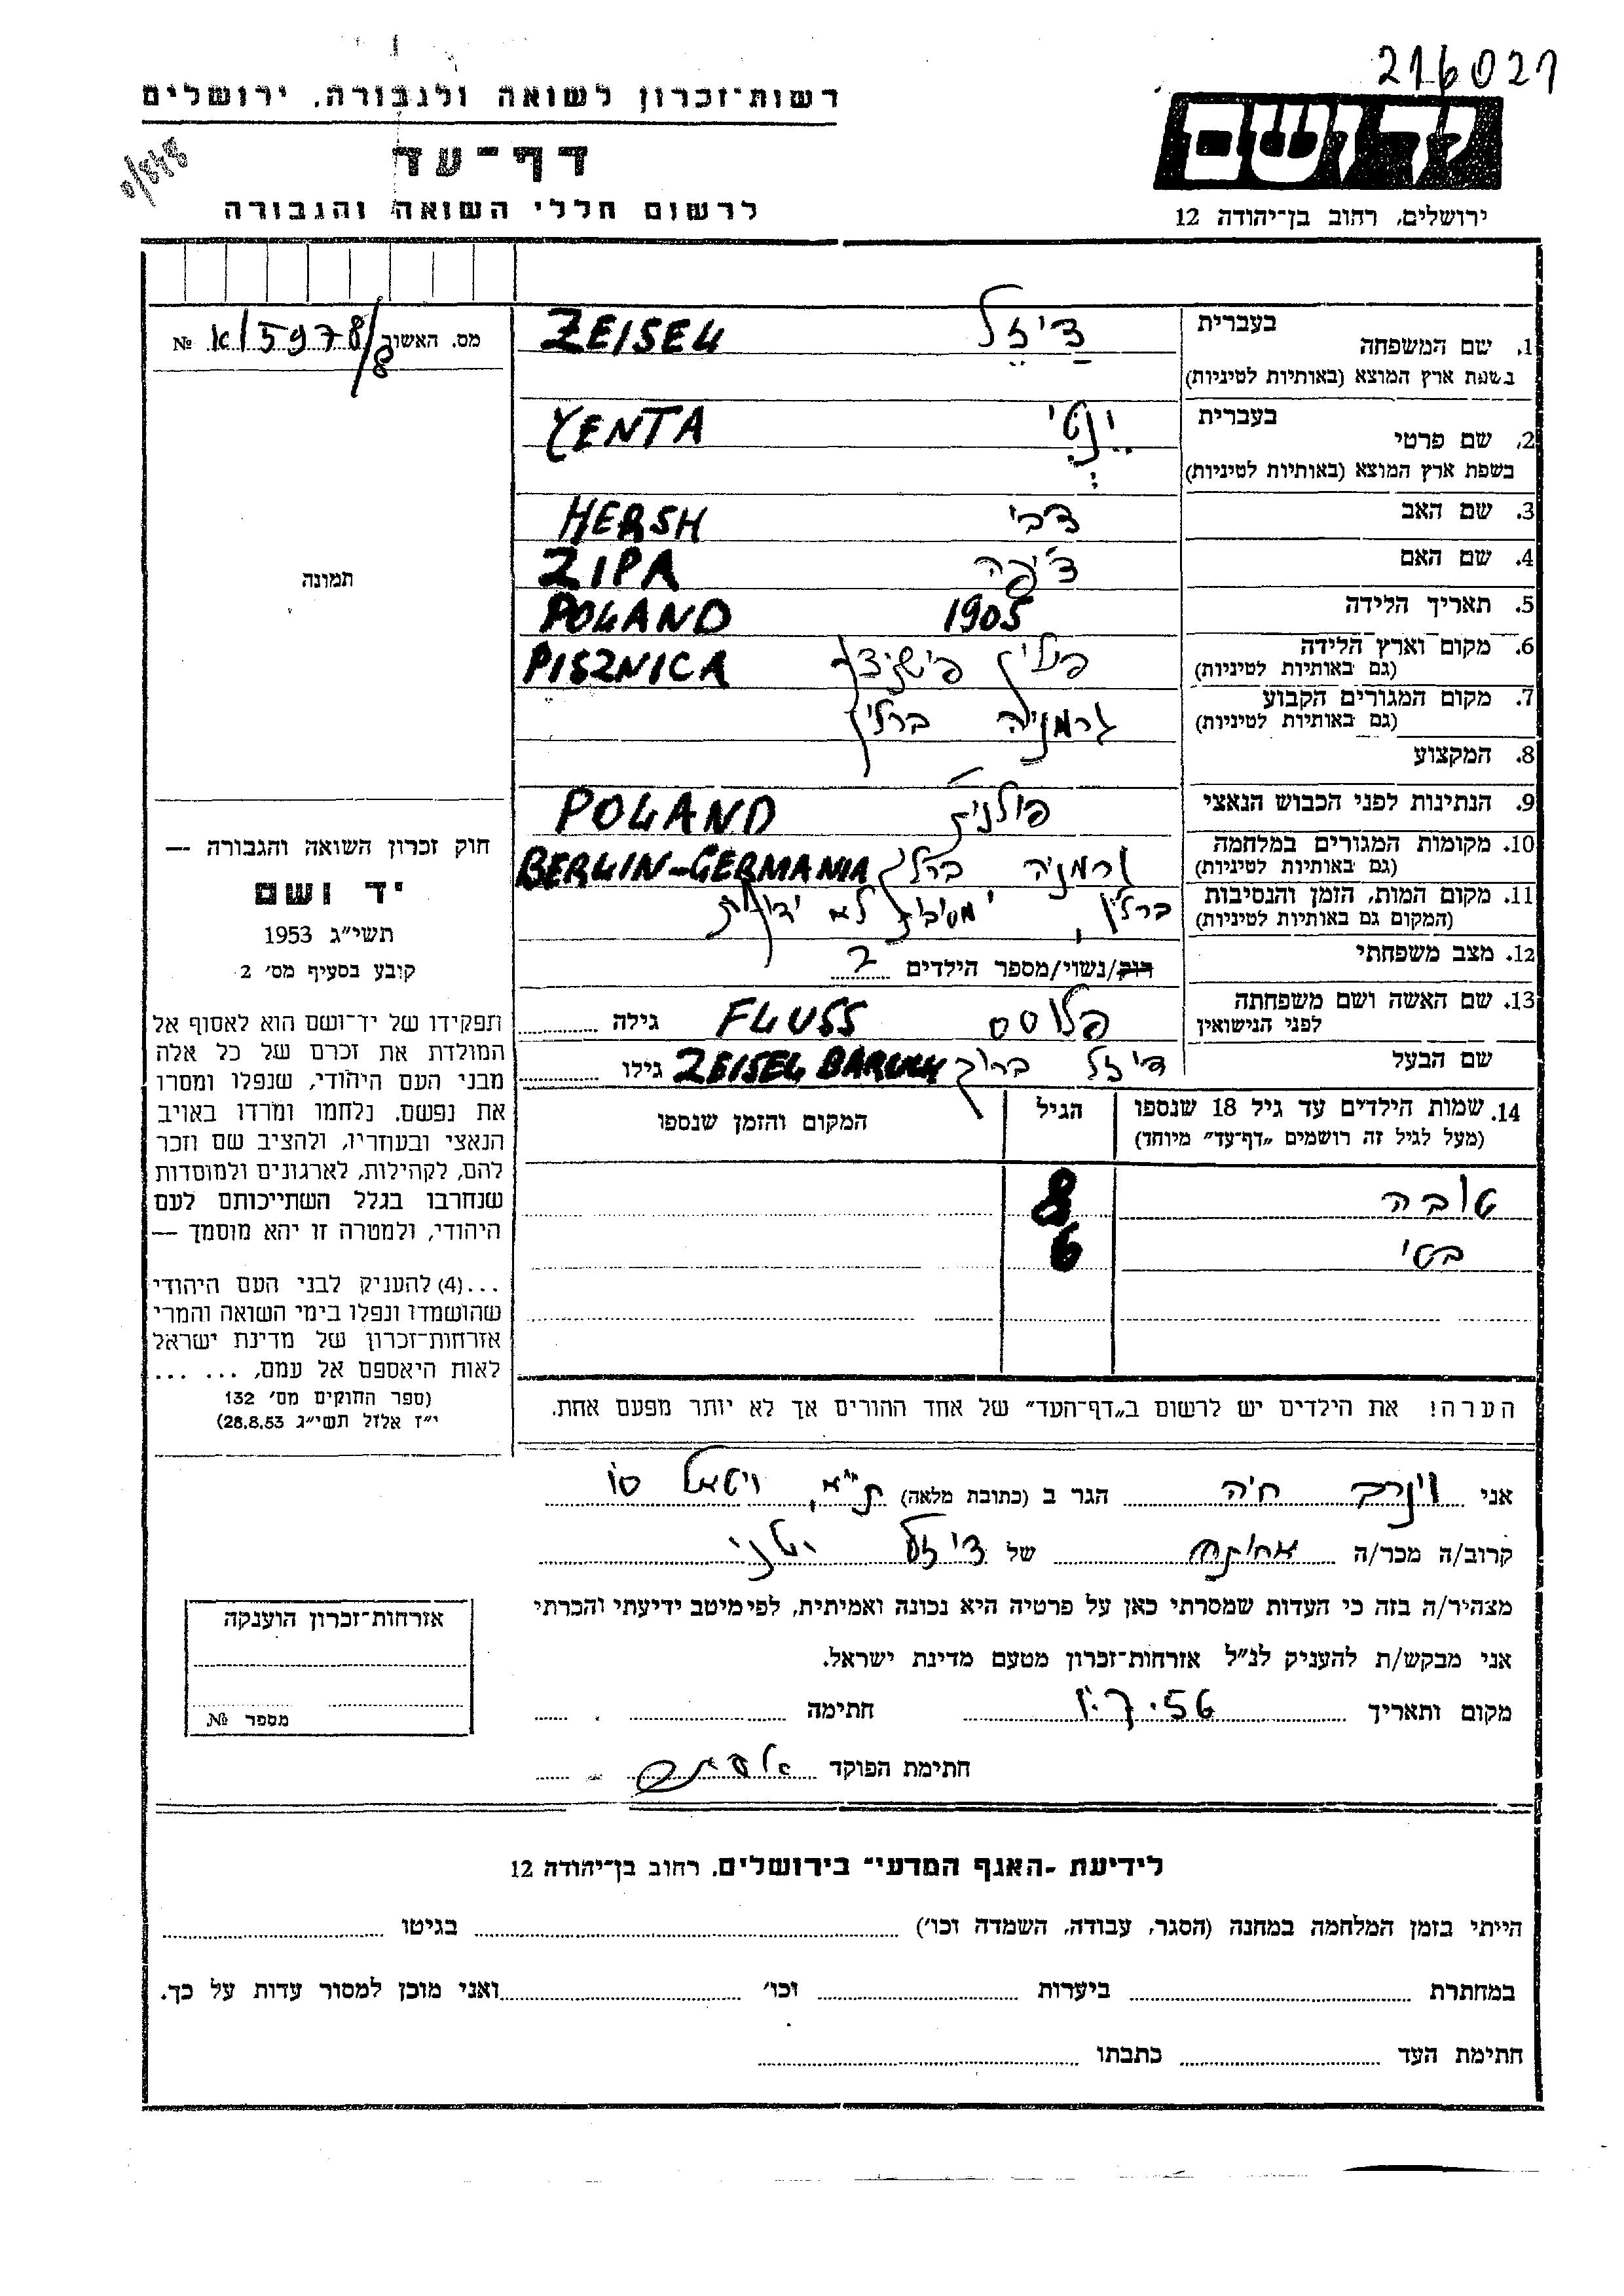 216021
רשות־זכרון לשואה ולגבורה, ירושלים
דף־עד
לרשום חללי השואה והגבורה
יד ושם
ירושלים, רחוב בן־יהודה 12
מס. האשור 5978/8 №
1. שם המשפחה בעברית צייזל
בשפת ארץ המוצא (באותיות לטיניות) ZEISEL
2. שם פרטי בעברית ינטי
בשפת ארץ המוצא (באותיות לטיניות) YENTA
3. שם האב צבי HERSH
4. שם האם ציפה ZIPA
5. תאריך הלידה 1905 POLAND
6. מקום וארץ הלידה פולין PISZNICA
(גם באותיות לטיניות)
7. מקום המגורים הקבוע גרמניה ברלין
(גם באותיות לטיניות)
8. המקצוע
9. הנתינות לפני הכבוש הנאצי פולנית POLAND
10. מקומות המגורים במלחמה גרמניה ברלין BERLIN-GERMANIA
(גם באותיות לטיניות)
11. מקום המות, הזמן והנסיבות ברלין, נסיבות לא ידועות
(המקום גם באותיות לטיניות)
12. מצב משפחתי רוק/נשוי/מספר הילדים 2
13. שם האשה ושם משפחתה פלוסס FLUSS גילה
לפני הנישואין
שם הבעל צייזל ברוך ZEISEL BARUCH גילו
14. שמות הילדים עד גיל 18 שנספו הגיל המקום והזמן שנספו
(מעל לגיל זה רושמים „דף־עד” מיוחד)
טובה 8
בטי 6
הערה! את הילדים יש לרשום ב„דף־העד” של אחד ההורים אך לא יותר מפעם אחת.
תמונה
חוק זכרון השואה והגבורה —
יד ושם
תשי״ג 1953
קובע בסעיף מס׳ 2
תפקידו של יד־ושם הוא לאסוף אל
המולדת את זכרם של כל אלה
מבני העם היהודי, שנפלו ומסרו
את נפשם, נלחמו ומרדו באויב
הנאצי ובעוזריו, ולהציב שם וזכר
להם, לקהילות, לארגונים ולמוסדות
שנחרבו בגלל השתייכותם לעם
היהודי, ולמטרה זו יהא מוסמך —
...(4) להעניק לבני העם היהודי
שהושמדו ונפלו בימי השואה והמרי
אזרחות־זכרון של מדינת ישראל
לאות היאספם אל עמם, ... ...
(ספר החוקים מס׳ 132
י״ז אלול תשי״ג 28.8.53)
אני וינרב חיה הגר ב (כתובת מלאה) ת״א,
קרוב/ה מכר/ה אחותה של צייזל ינטי
מצהיר/ה בזה כי העדות שמסרתי כאן על פרטיה היא נכונה ואמיתית, לפי מיטב ידיעתי והכרתי
אני מבקש/ת להעניק לנ״ל אזרחות־זכרון מטעם מדינת ישראל.
מקום ותאריך חתימה
חתימת הפוקד
אזרחות־זכרון הוענקה
מספר №
לידיעת ־האגף המדעי״ בירושלים, רחוב בן־יהודה 12
הייתי בזמן המלחמה במחנה (הסגר, עבודה, השמדה וכו׳) בגיטו
במחתרת ביערות וכו׳ ואני מוכן למסור עדות על כך.
חתימת העד כתבתו